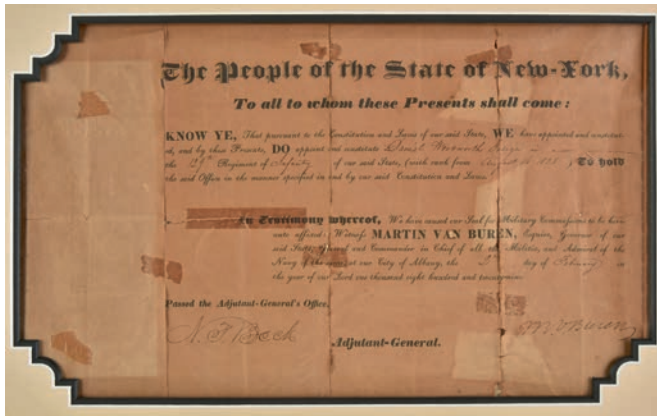 The People of the State of New-York,
To all to whom these Presents shall come:
KNOW YE, That pursuant to the Constitution and Laws of our said State, WE have appointed and constitut-
ed, and by these Presents, DO appoint and constitute Daniel
the 139th Regiment of Infantry of our said State, (with rank from August 1828) To hold
the said Office in the manner specified in and by our said Constitution and Laws.
In Testimony whereof, We have caused our Seal for Military Commissions to be here-
unto affixed: Witness MARTIN VAN BUREN, Esquire, Governor of our
said State, General and Commander in Chief of all the Militia, and Admiral of the
Navy of the same, at our City of Albany, the 2d day of February in
the year of our Lord one thousand eight hundred and twenty-nine.
Passed the Adjutant-General's Office,
N. F. Beck
Adjutant-General.
M. V. Buren